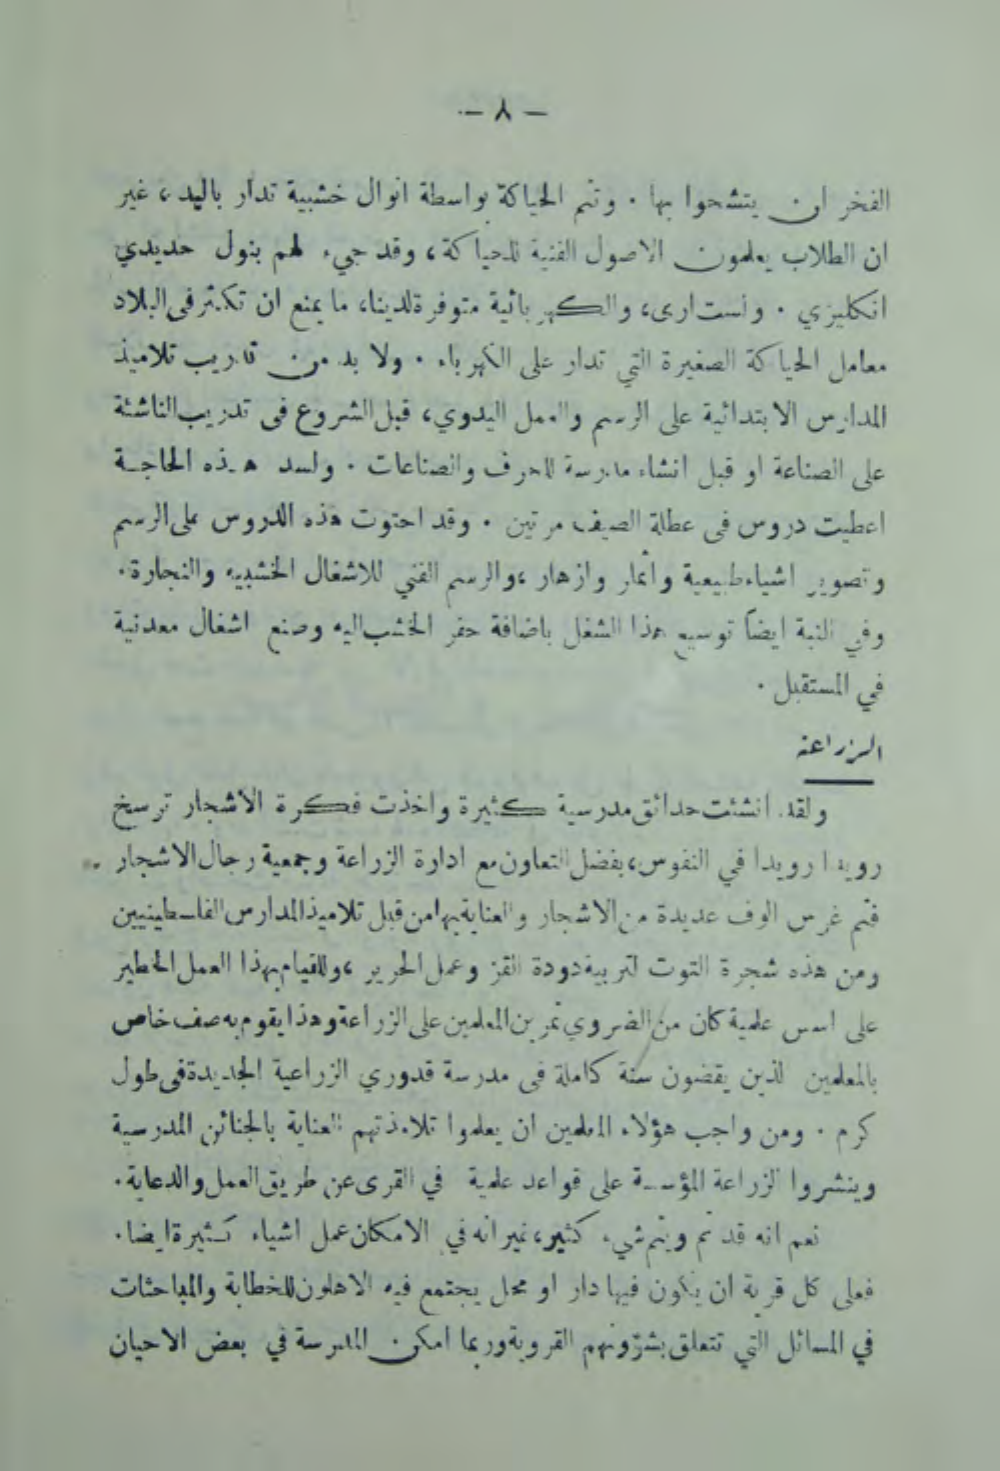 — ٨ —
الفخر ان يتشحوا بها . وتتم الحياكة بواسطة انوال خشبية تدار باليد ، غير
ان الطلاب يعلمون الاصول الفنية للحياكة ، وقد جيء لهم بنول حديدي
انكليزي . ولست ارى، والكهربائية متوفرة لدينا، ما يمنع ان تكثر فى البلاد
معامل الحياكة الصغيرة التي تدار على الكهرباء . ولا بد من تدريب تلاميذ
المدارس الابتدائية على الرسم والعمل اليدوي، قبل الشروع فى تدريب الناشئة
على الصناعة او قبل انشاء مدرسة للحرف والصناعات . ولسد هذه الحاجة
اعطيت دروس فى عطلة الصيف مرتين . وقد احتوت هذه الدروس على الرسم
وتصوير اشياء طبيعية واثمار وازهار ،والرسم الفني للاشغال الخشبيه والنجارة.
وفي النية ايضاً توسيع هذا الشغل باضافة حفر الخشب اليه وصنع اشغال معدنية
في المستقبل .
الزراعة
ولقد انشئت حدائق مدرسية كثيرة واخذت فكرة الاشجار ترسخ
رويدا رويدا في النفوس، بفضل التعاون مع ادارة الزراعة وجمعية رجال الاشجار .
فتم غرس الوف عديدة من الاشجار والعناية بها من قبل تلاميذ المدارس الفلسطينيين
ومن هذه شجرة التوت لتربية دودة القز وعمل الحرير ،وللقيام بهذا العمل الخطير
على اسس علمية كان من الضروي تمرين المعلمين على الزراعة وهذا يقوم به صف خاص
بالمعلمين الذين يقضون سنة كاملة فى مدرسة قدوري الزراعية الجديدة فى طول
كرم . ومن واجب هؤلاء المعلمين ان يعلموا تلامذتهم العناية بالجنائن المدرسية
وينشروا الزراعة المؤسسة على قواعد علمية في القرى عن طريق العمل والدعاية.
نعم انه قد تم ويتم شيء كثير، غير انه في الامكان عمل اشياء كثيرة ايضا.
فعلى كل قرية ان يكون فيها دار او محل يجتمع فيه الاهلون للخطابة والمباحثات
في المسائل التي تتعلق بشؤونهم القروية وربما امكن المدرسة في بعض الاحيان